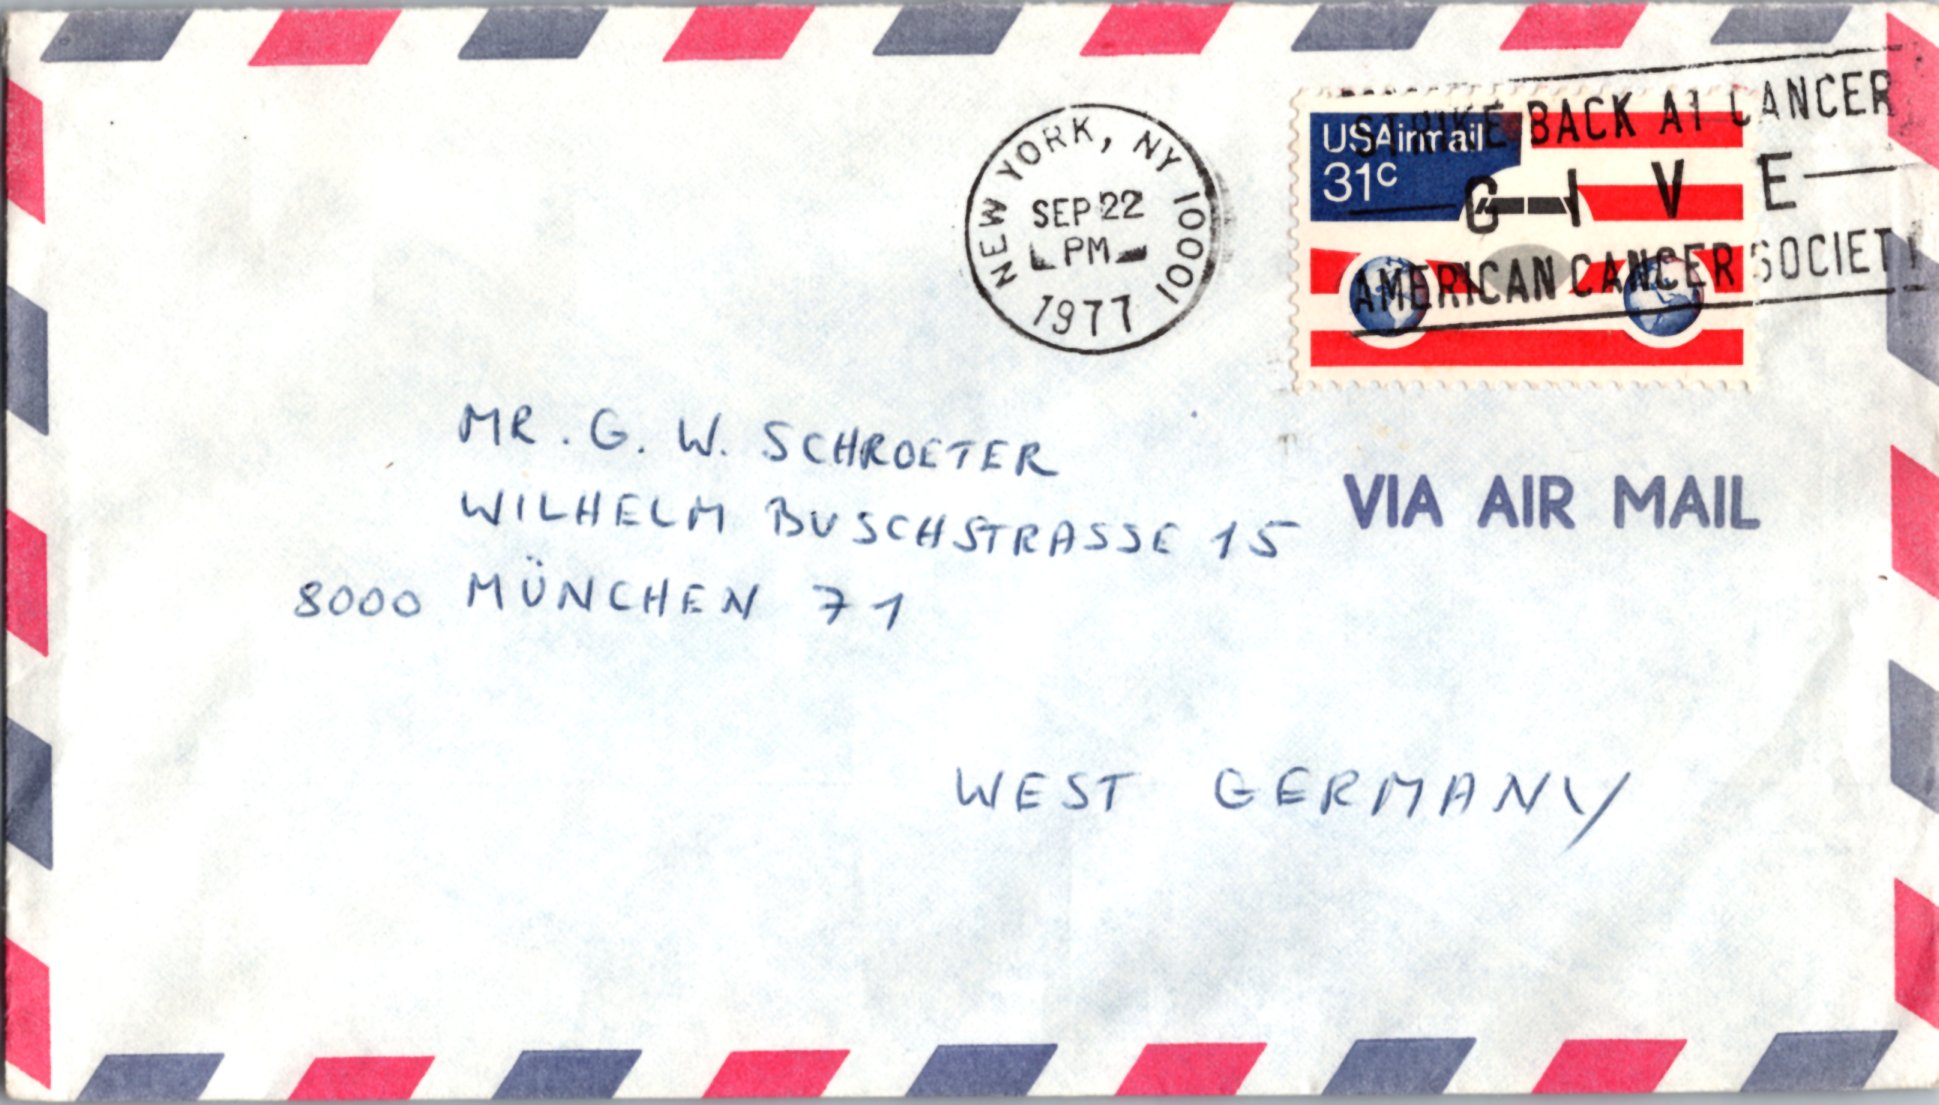 NEW YORK, NY 10001
SEP 22
PM
1977
USAirmail
31c
STRIKE BACK AT CANCER
GIVE
AMERICAN CANCER SOCIETY
MR. G. W. SCHROETER
WILHELM BUSCHSTRASSE 15
8000 MÜNCHEN 71
VIA AIR MAIL
WEST GERMANY